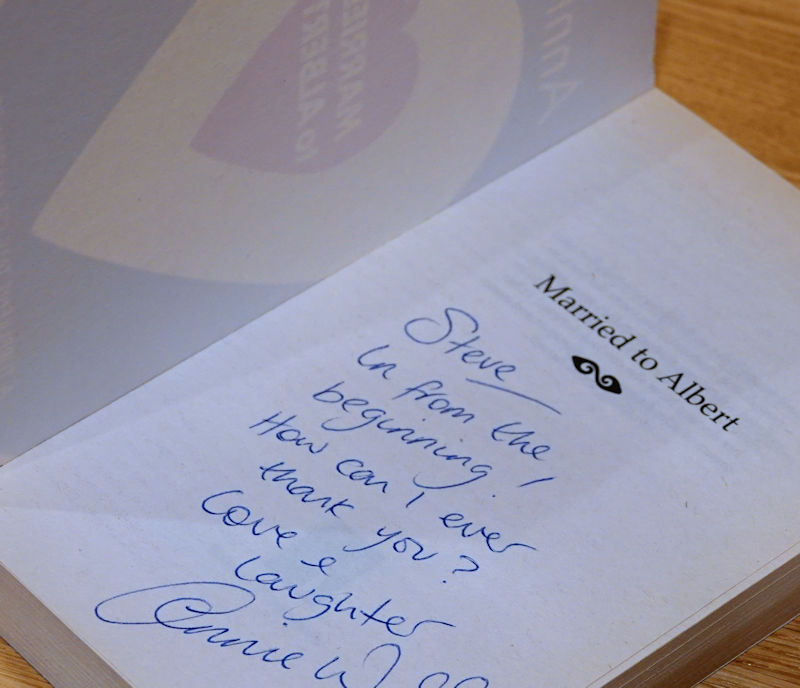 MARRIED
TO ALBERT
Married to Albert
Steve
In from the
beginning!
How can I ever
thank you?
Love &
Laughter
Annie